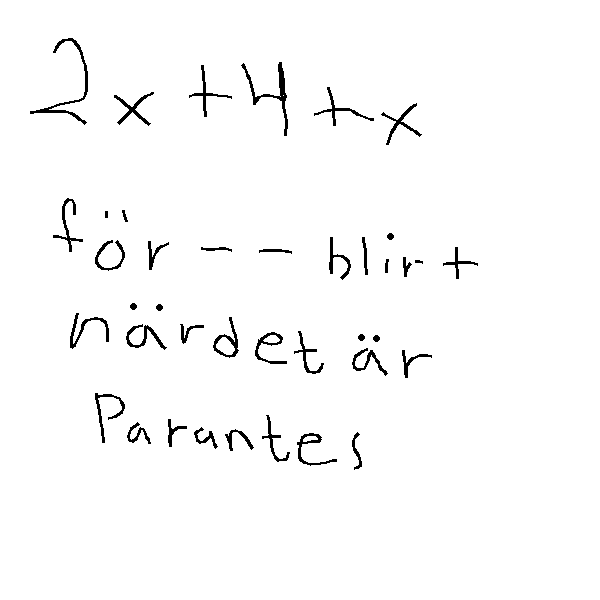 2x + 4 + x
för - - blir +
när det är
Parantes